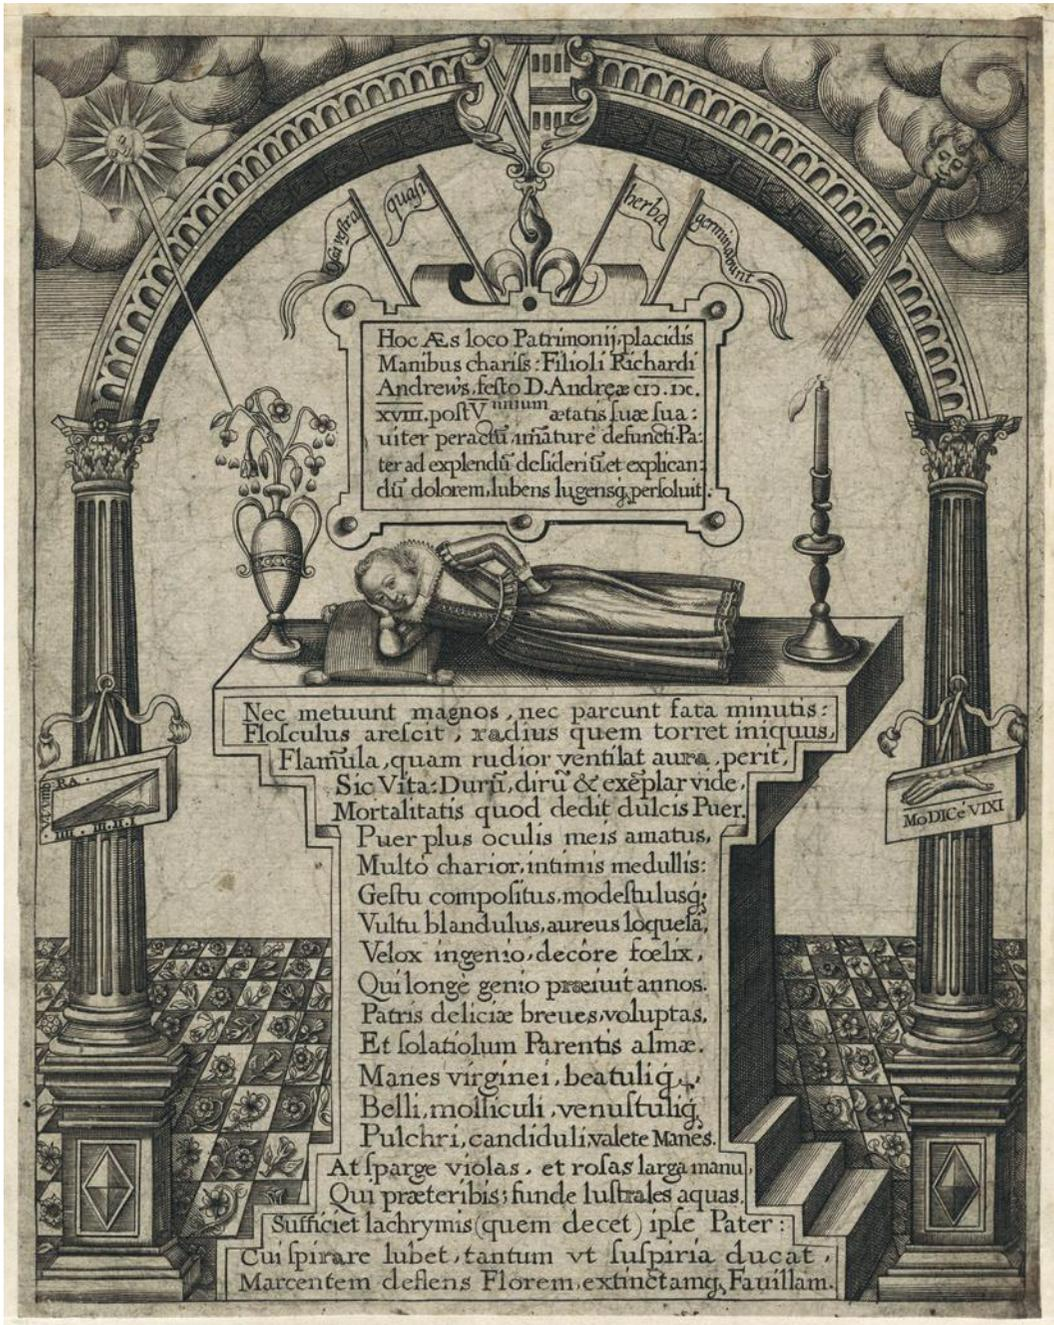 Ossa vestra
quasi
herba
germinabunt
Hoc Æs loco Patrimonij, placidis
Manibus chariſs: Filioli Richardi
Andrews, feſto D. Andreæ cıɔ.ıɔc.
XVIII. poſt V nnium ætatis ſuæ ſua:
uiter peractũ, im̃ature defuncti. Pa:
ter ad explendũ deſideriũ, et explican:
dũ dolorem, lubens lugensq̃, perſoluit.
Nec metuunt magnos, nec parcunt fata minutis:
Floſculus areſcit, radius quem torret iniquus,
Flam̃ula, quam rudior ventilat aura, perit,
Sic Vita: Durũ, dirũ & exẽplar vide,
Mortalitatis quod dedit dulcis Puer.
Puer plus oculis meis amatus,
Multò charior, intimis medullis:
Geſtu compoſitus, modeſtulusq̃;
Vultu blandulus, aureus loquelâ,
Velox ingenio, decôre fœlix,
Qui longè genio præiuit annos.
Patris deliciæ breues, voluptas,
Et ſolatiolum Parentis almæ.
Manes virginei, beatuliq̃,
Belli, molliculi, venuſtuliq̃,
Pulchri, candiduli, valete Manes.
At ſparge violas, et roſas larga manu,
Qui præteribis; funde luſtrales aquas,
Sufficiet lachrymis (quem decet) ipſe Pater:
Cui ſpirare lubet, tantum vt ſuſpiria ducat,
Marcentem deflens Florem, extinctamq̃, Fauillam.
RA.
IIII. III. II. I
MoDICè VIXI